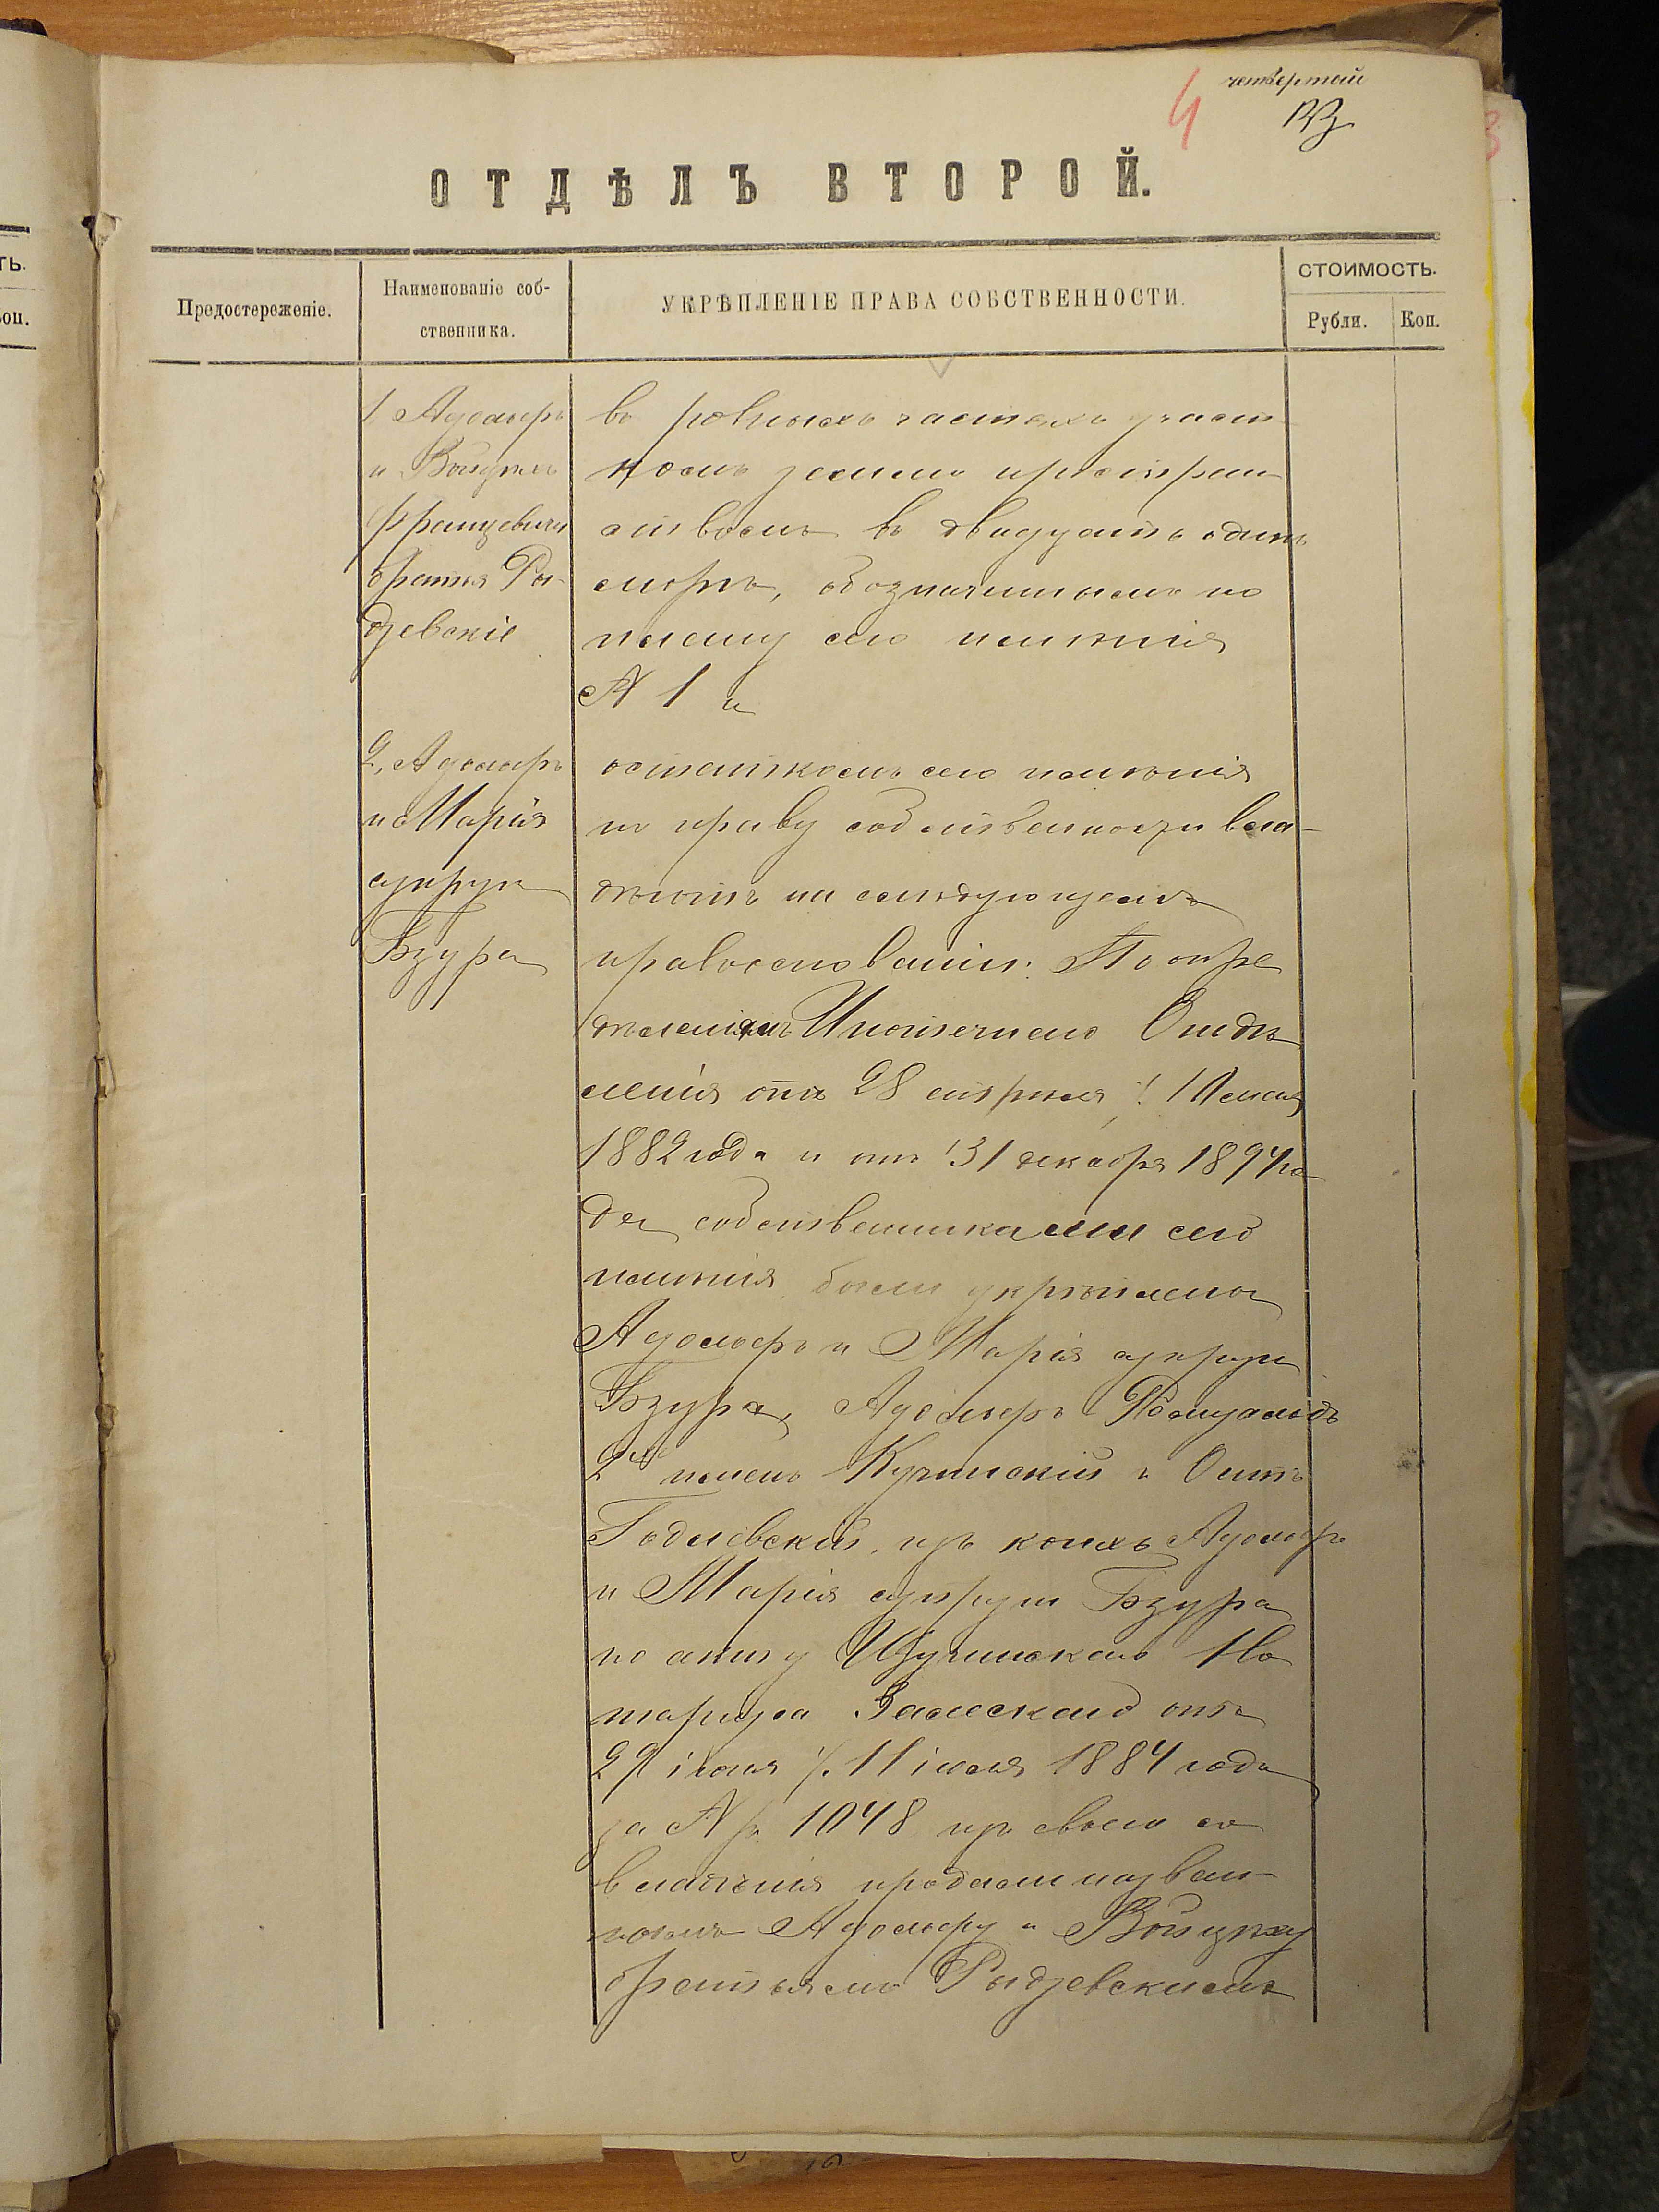 четвертый
4
ОТДѢЛЪ ВТОРОЙ.
Предостереженіе.
Наименованіе соб-
ственника.
УКРѢПЛЕНІЕ ПРАВА СОБСТВЕННОСТИ.
СТОИМОСТЬ.
Рубли.
Коп.
1, Адольфъ
и Войцѣхъ
Францевичи
братья Ры-
дзевскіе
въ ровныхъ частяхъ участ-
комъ земли простран-
ствомъ въ двадцать одинъ
моргъ, обозначеннымъ по
плану сего имѣнія
№ 1 и
2, Адольфъ
и Марія
супруги
Бзура
остаткомъ сего имѣнія
по праву собственности вла-
дѣютъ на слѣдующемъ
правооснованіи: По опре
дѣленіямъ Ипотечнаго Отдѣ
ленія отъ 28 апрѣля /10 мая
1882 года и отъ 31 декабря 1894 го-
да собственниками сего
имѣнія были укрѣплены
Адольфъ и Марія супруги
Бзура, Адольфъ Ромуальдъ
2хъ именъ Кучинскій и Осипъ
Годлевскій, изъ коихъ Адольфъ
и Марія супруги Бзура
по акту Щучинскаго Но
таріуса Залескаго отъ
29 іюня /11 іюля 1884 года
за № 1048 изъ своего со
владѣнія продали назван-
нымъ Адольфу и Войцѣху
братьямъ Рыдзевскимъ